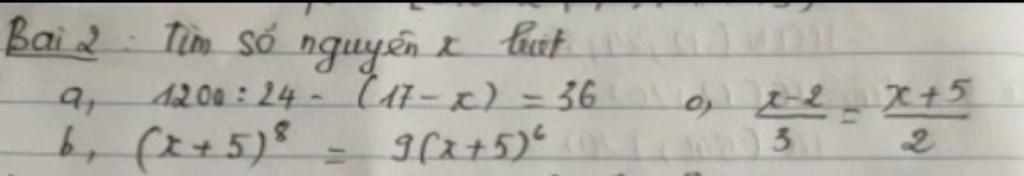 Bài 2: Tìm số nguyên x biết
a, 1200 : 24 - (17 - x) = 36 c, (x-2)/3 = (x+5)/2
b, (x + 5)⁸ = 9(x+5)⁶